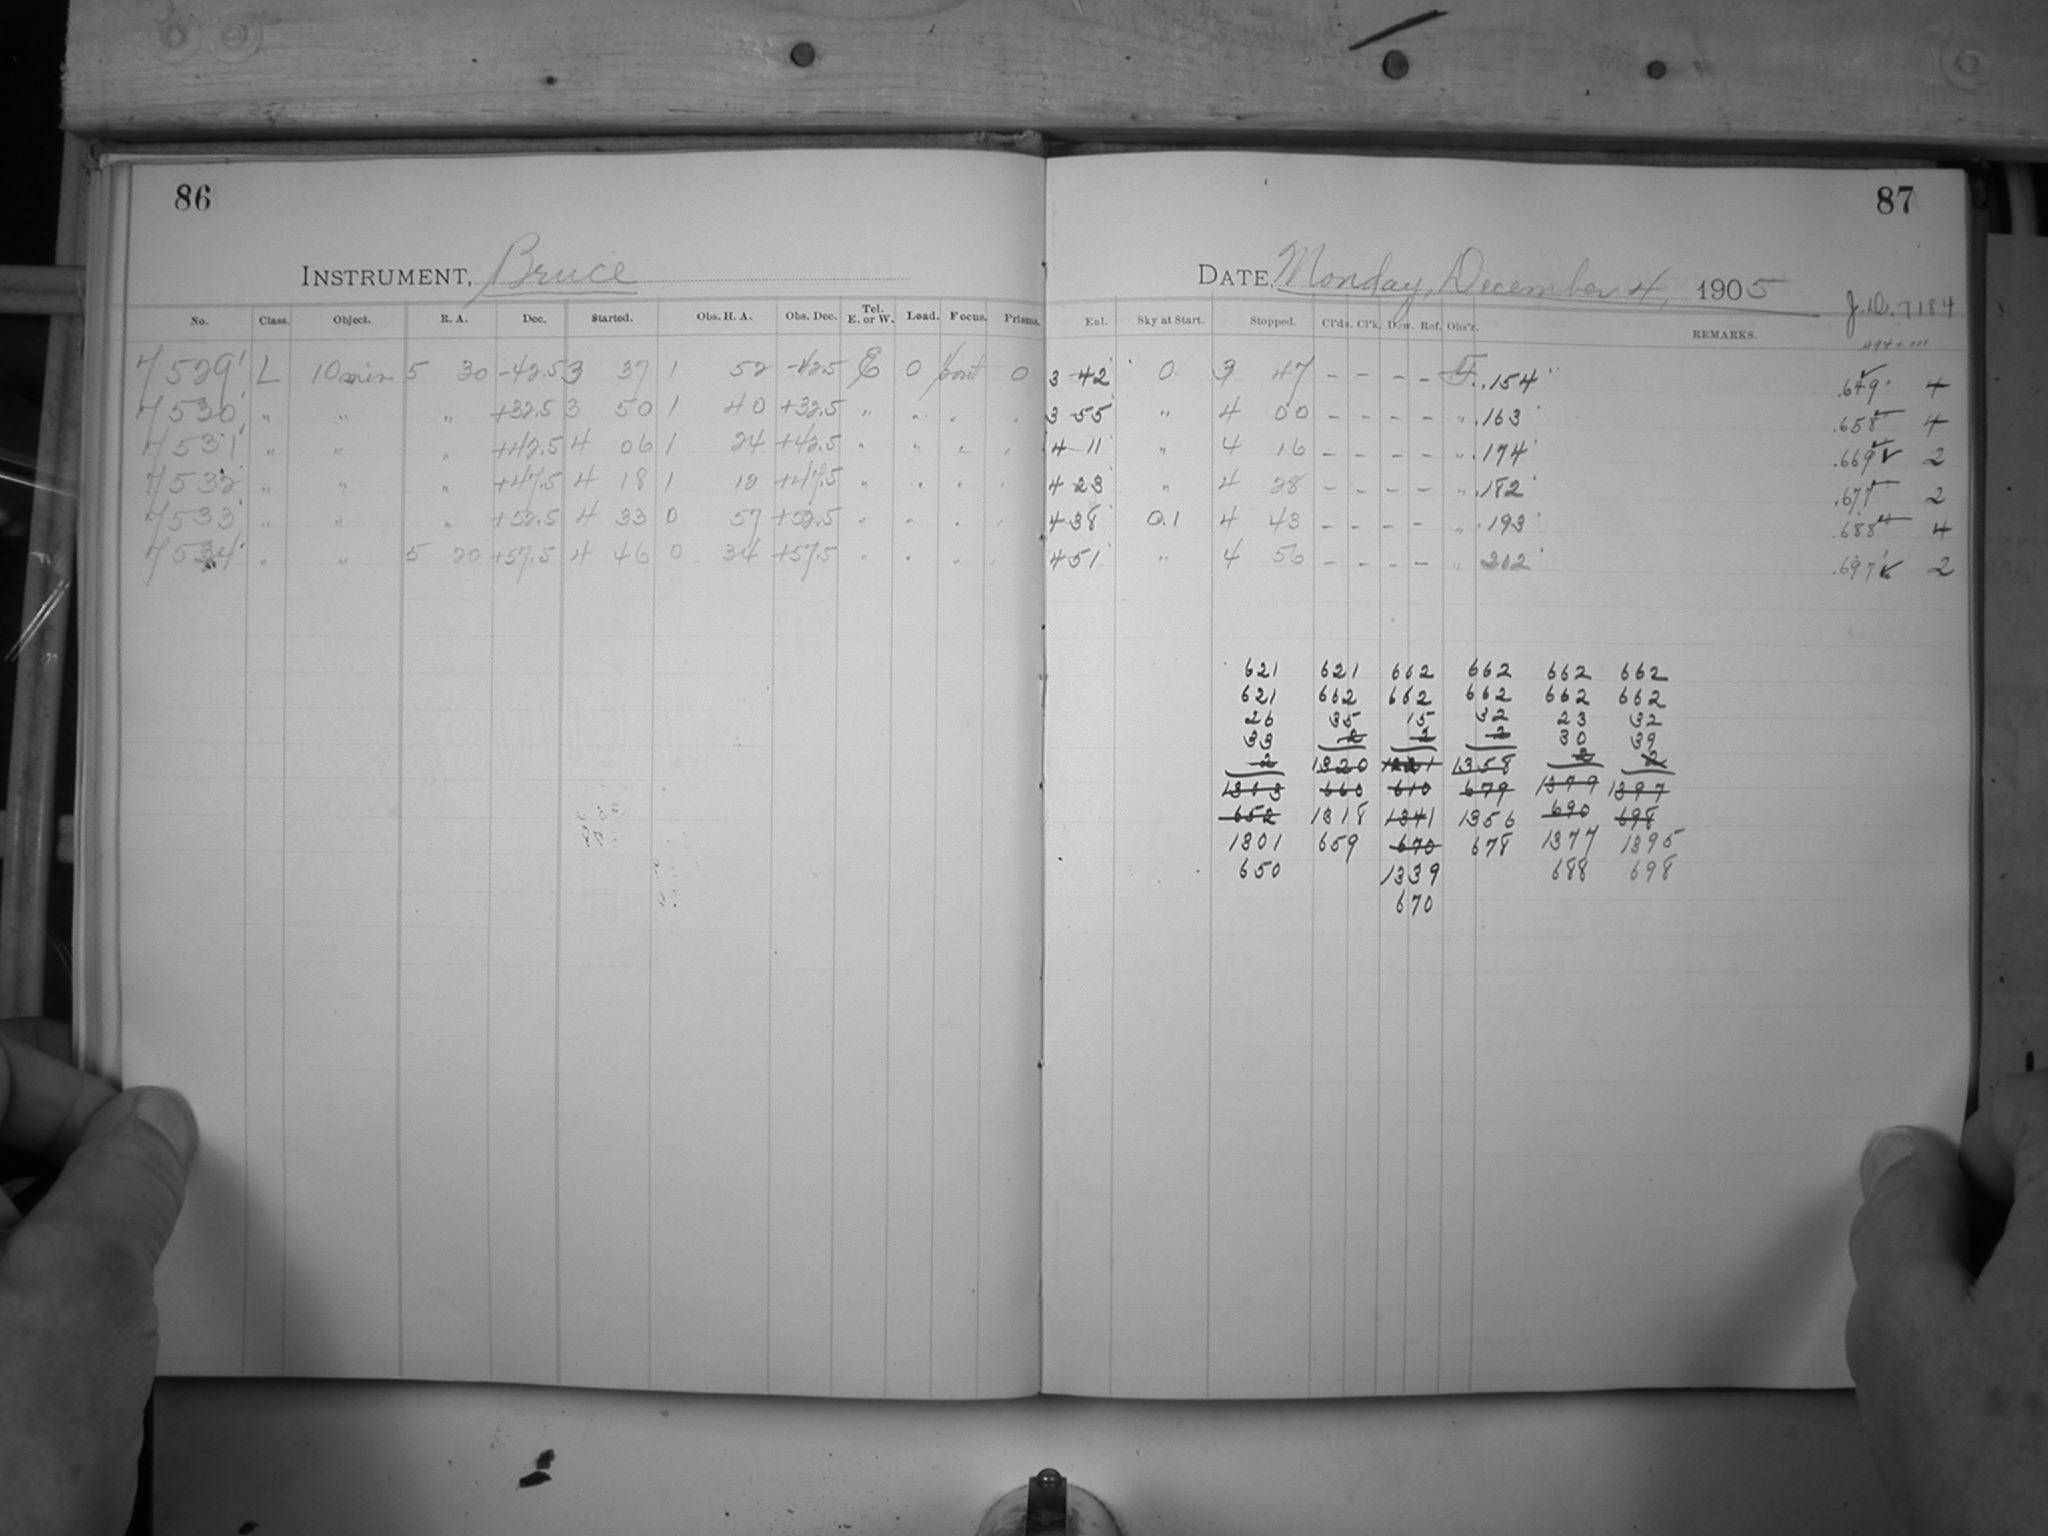 86
87
INSTRUMENT, Bruce
DATE, Monday, December 4, 1905
J.D. 7184
No. Class. Object. R. A. Dec. Started. Obs. H. A. Obs. Dec. Tel. E. or W. Load. Focus. Prisms. Ent. Sky at Start. Stopped. Cl'ds. Cl'k. Dew. Ref. Obs'r. REMARKS.
7529 L 10 min 5 30 -42.5 3 37 1 52 -42.5 E 0 0 3 42 0 3 47 - - - - F. .154 .649 4
7530 " " " +32.5 3 50 1 40 +32.5 " " " " 3 55 " 4 00 - - - - " .163 .658 4
7531 " " " +42.5 4 06 1 24 +42.5 " " " " 4 11 " 4 16 - - - - " .174 .669 ✓ 2
7532 " " " +47.5 4 18 1 12 +47.5 " " " " 4 23 " 4 28 - - - - " .182 .677 2
7533 " " " +52.5 4 33 0 57 +52.5 " " " " 4 38 0.1 4 43 - - - - " .193 .688 4
7534 " " 5 20 +57.5 4 46 0 34 +57.5 " " " " 4 51 " 4 56 - - - - " 202 .697 ✓ 2
621 621 662 662 662 662
621 662 662 662 662 662
26 35 15 32 23 32
33 2 2 2 30 39
2 1320 1358 2 2
1303 660 610 679 1379 1397
652 1318 1341 1356 690 698
1301 659 670 678 1377 1395
650 1339 688 698
670